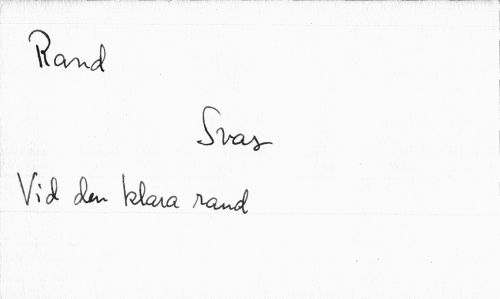 Rand
Svas
Vid den klara rand